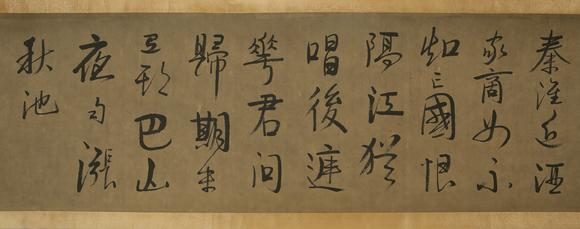 秦淮近酒
家商女不
知亡國恨
隔江猶
唱後庭
華君问
歸期未
有期巴山
夜雨漲
秋池